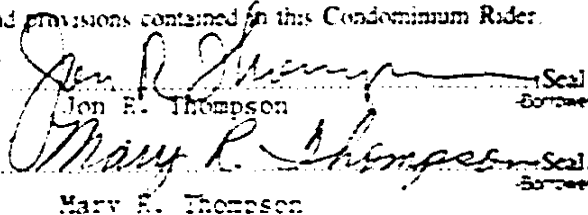 nd provisions contained in this Condominium Rider.
Jon R. Thompson Seal
-Borrower
Jon R. Thompson
Mary R. Thompson Seal
-Borrower
Mary R. Thompson